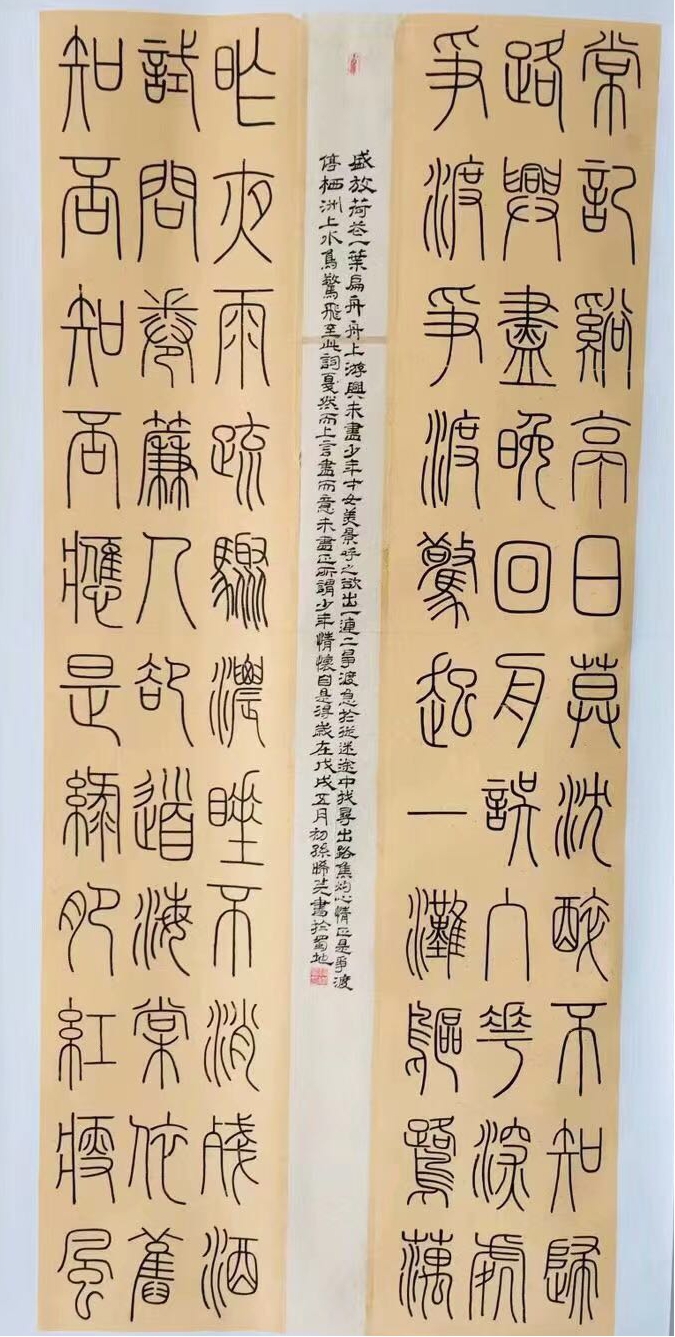 常記谿亭日莫沈醉不知歸
路興盡晚回舟誤入華深處
爭渡爭渡驚起一灘鷗鷺蕅
盛放荷花一葉扁舟舟上游興未盡少年才女美景呼之欲出一連二爭渡急於從迷途中找尋出路焦灼心情正是爭渡
停栖洲上水鳥驚飛至此詞戛然而止言盡而意未盡正所謂少年情懷自是得歲在戊戌五月初孫晞書於蜀地
昨夜雨疏驟濃睡不消殘酒
試問卷簾人卻道海棠依舊
知否知否應是綠肥紅瘦風